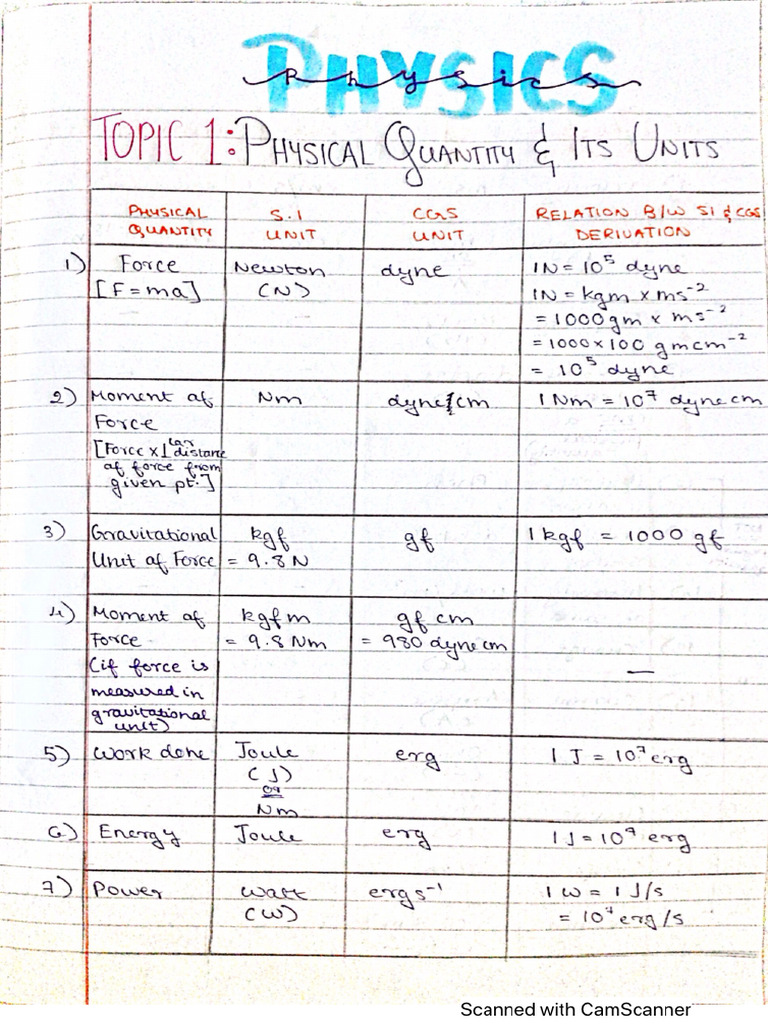 PHYSICS
Physics
TOPIC 1: PHYSICAL QUANTITY & ITS UNITS
PHYSICAL QUANTITY
S.I UNIT
CGS UNIT
RELATION B/W SI & CGS DERIVATION
1) Force
[F = ma]
Newton
(N)
dyne
1N = 10⁵ dyne
1N = kgm x ms⁻²
= 1000 gm x ms⁻²
= 1000 x 100 gmcm⁻²
= 10⁵ dyne
2) Moment of
Force
[Force x ⊥ lar distance
of force from
given pt.]
Nm
dyne cm
1 Nm = 10⁷ dyne cm
3) Gravitational
Unit of Force
kgf
= 9.8 N
gf
1 kgf = 1000 gf
4) Moment of
Force
(if force is
measured in
gravitational
unit)
kgfm
= 9.8 Nm
gf cm
= 980 dyne cm
—
5) Work done
Joule
(J)
or
Nm
erg
1 J = 10⁷ erg
6) Energy
Joule
erg
1 J = 10⁷ erg
7) Power
Watt
(W)
erg s⁻¹
1 W = 1 J/s
= 10⁷ erg/s
Scanned with CamScanner